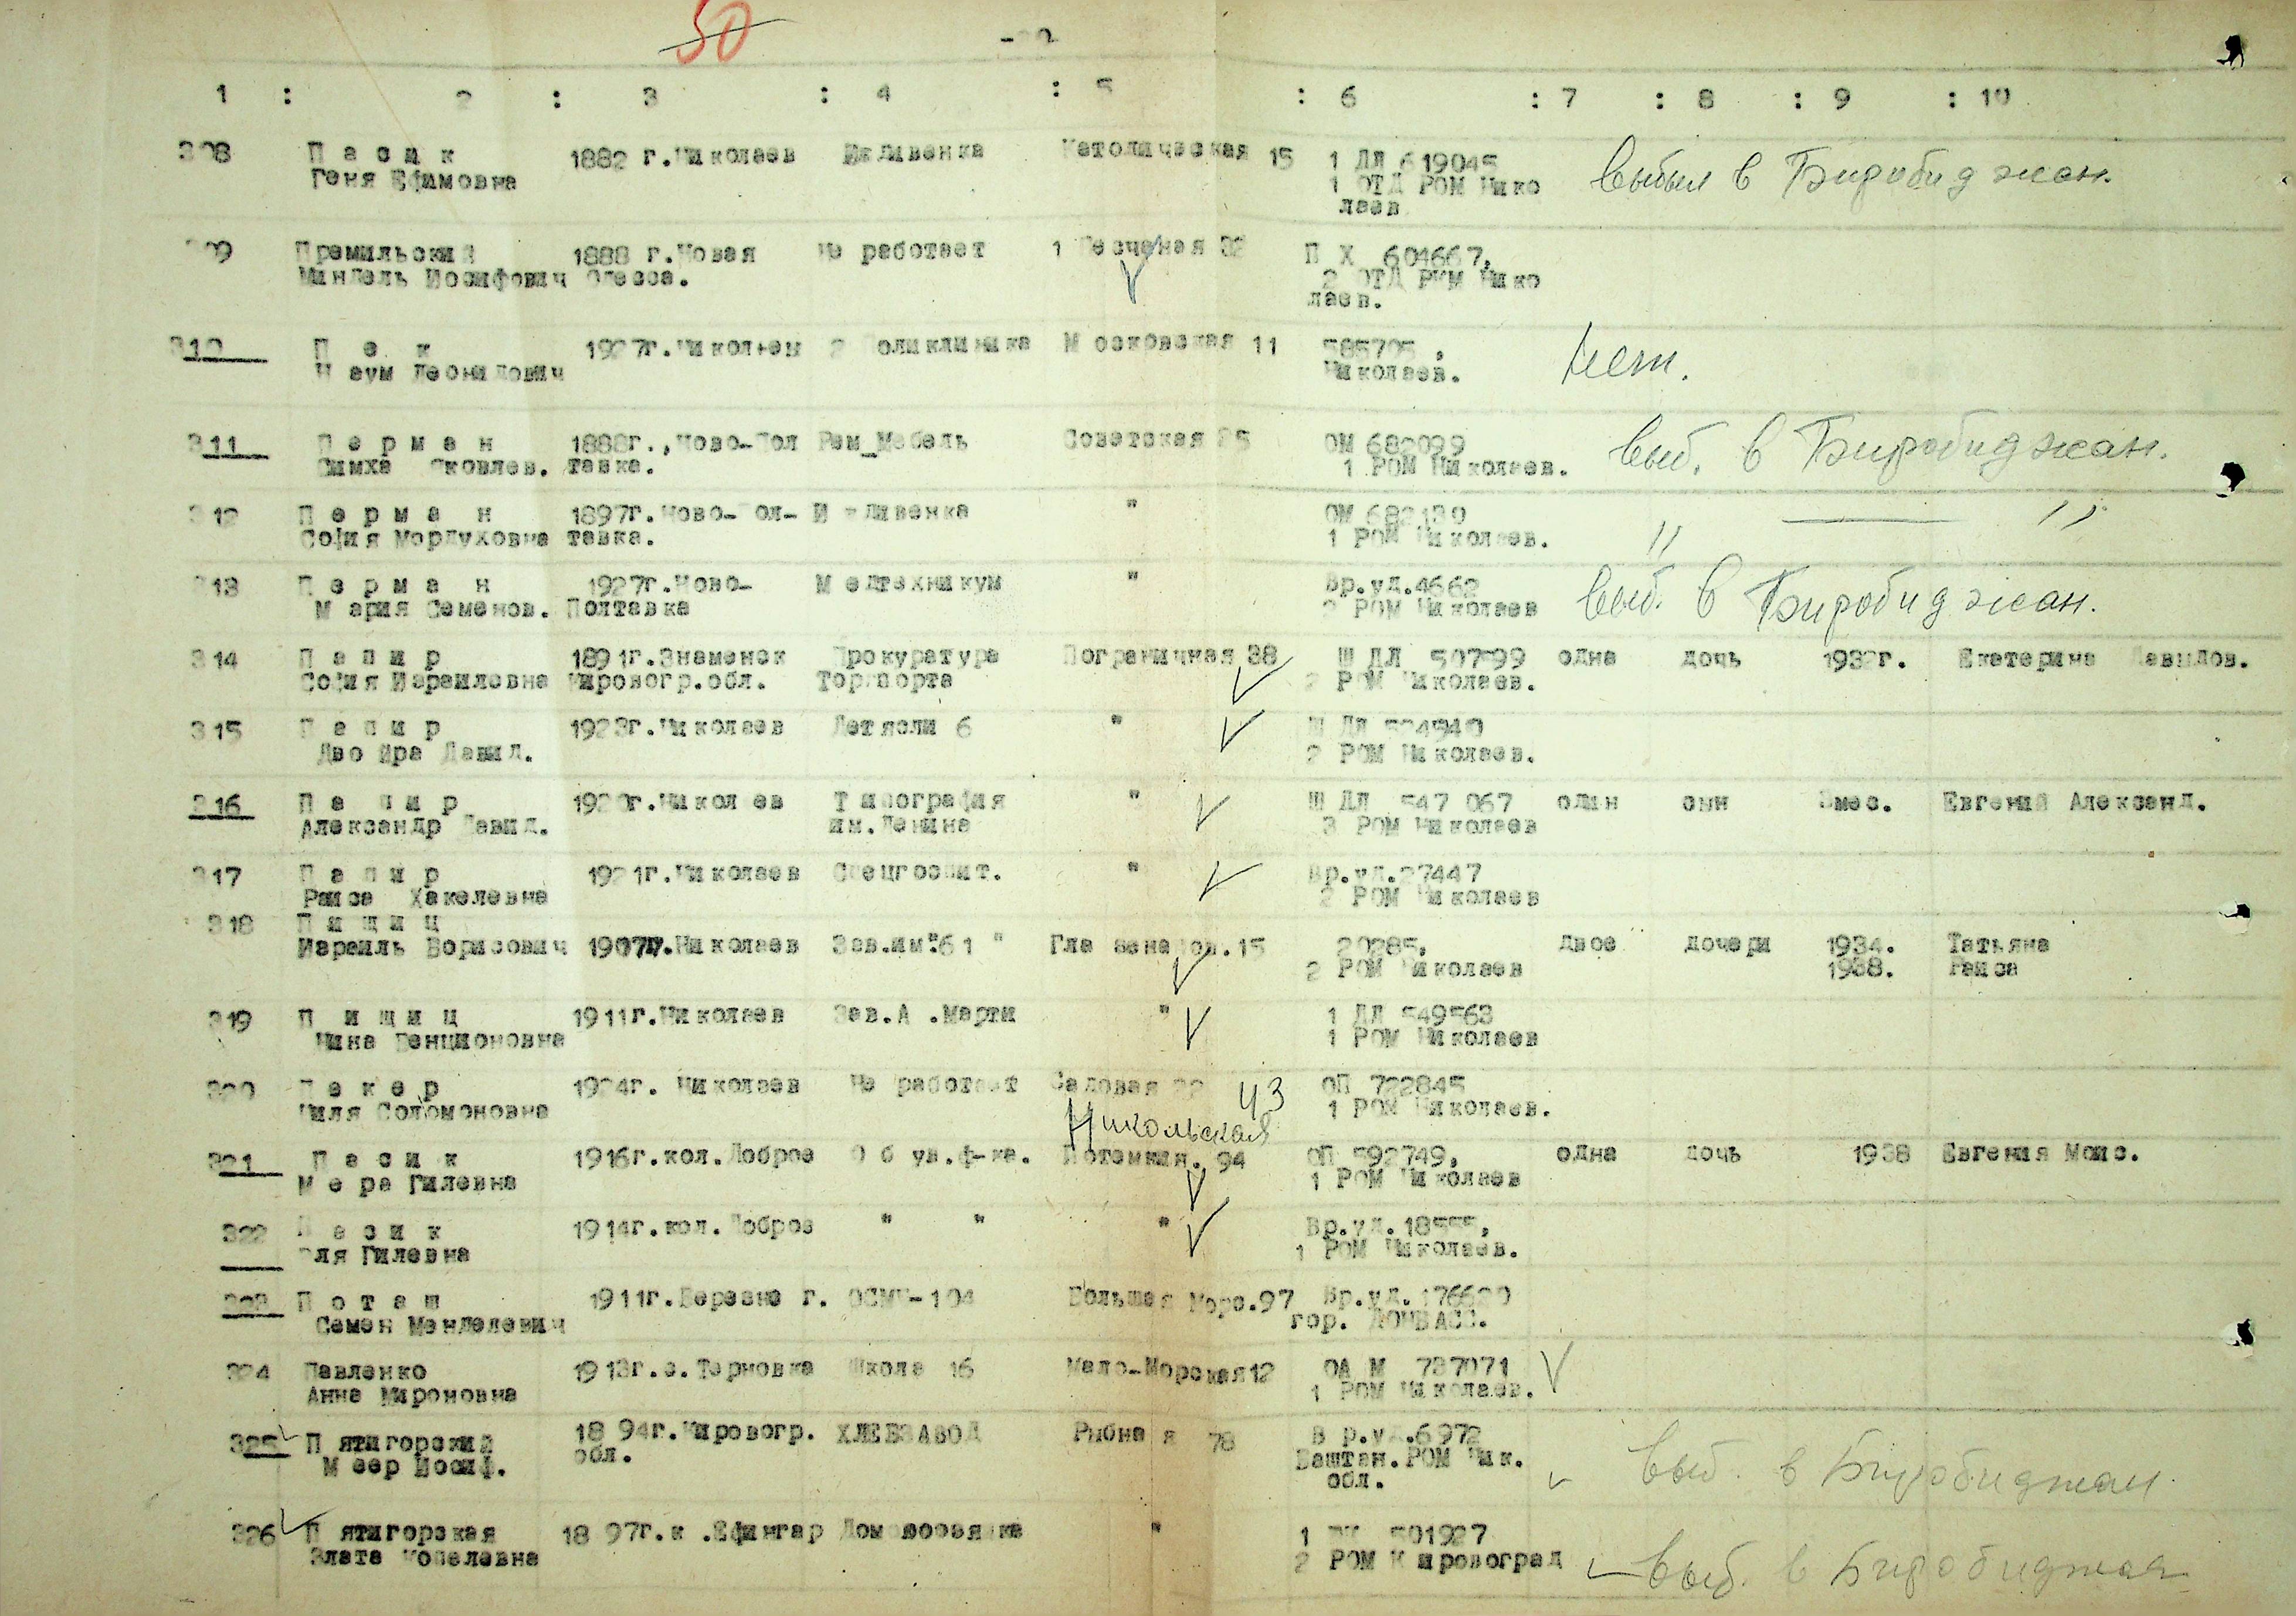 50
1 : 2 : 3 : 4 : 5 : 6 : 7 : 8 : 9 : 10
308 П а с и к 1882 г.Николаев Иждивенка Католическая 15 1 ДЛ 619045 выбыл в Биробиджан.
Геня Ефимовна 1 ОТД РОМ Нико
лаев
309 Премильский 1888 г.Новая Не работает 1 Песчаная 32 П Х 604667,
Миндель Иосифович Одесса. 2 ОТД РКМ Нико
лаев.
310 П е к 1927г.Николаев 2 Поликлиника М осковская 11 585705 , Нет.
Н аум Леонидович Николаев.
311 П е р м а н 1888г.,Ново-Пол Рем_Мебель Советская 25 ОМ 682099 выб. в Биробиджан.
Симха Яковлев. тавка. 1 РОМ Николаев.
312 П е р м а н 1897г.Ново-Пол- И ждивенка " ОМ 682130 — " —
София Мордуховна тавка. 1 РОМ Николаев. "
313 П е р м а н 1927г.Ново- М едтехникум " Вр.уд.4662 выб. в Биробиджан.
М ария Семенов. Полтавка 2 РОМ Николаев
314 П а п и р 1891г.Знаменск Прокуратура Пограничная 38 Ш ДЛ 507599 одна дочь 1932г. Екатерина Давидов.
София Израилевна Кировогр.обл. Торгпорта 2 РОМ Николаев.
315 П а п и р 1923г.Николаев Детясли 6 " Ш ДЛ 524940
Дво йра Давид. 2 РОМ Николаев.
316 П а п и р 1920г.Никол ев Т ипография " Ш ДЛ 547 067 один сын 3мес. Евгений Александ.
Александр Давид. им.Ленина 3 РОМ Николаев
317 П а п и р 1921г.Николаев Спецгоспит. " Вр.уд.27447
Раиса Хакелевна 2 РОМ Николаев
318 П и щ и ц
Израиль Борисович 1907г.Николаев Зав.им."61 " Гла зенапов.15 20285, двое дочери 1934. Татьяна
2 РОМ Николаев 1938. Раиса
319 П и щ и ц 1911г.Николаев Зав.А .Марти " 1 ДЛ 549563
Нина Бенционовна 1 РОМ Николаев
320 П е к е р 1924г. Николаев Не работает Садовая 22 ОП 722845
43
Циля Соломоновна 1 РОМ Николаев.
Никольская
321 П а с и к 1916г.кол.Доброе О б ув.ф-ка. Потемкин. 94 ОП 592749, одна дочь 1938 Евгения Моис.
М е ра Гилевна 1 РОМ Николаев
322 П а с и к 1914г.кол.Доброе " " " Вр.уд.18555,
ля Гилевна 1 РОМ Николаев.
323 П о т а ш 1911г.Березно г. ОСМЧ-104 Большая Морс.97 Вр.уд.176620
Семен Менделевич гор. ДОНБАСС.
324 Павленко 1913г.с.Терновка Школа 16 Мало-Морская12 ОА М 737071
Анна Мироновна 1 РОМ Николаев.
325 П ятигорский 18 94г.Кировогр. ХЛЕБЗАВОД Рыбна я 78 В р.уд.6972 выб. в Биробиджан.
М еер Иосиф. обл. Баштан.РОМ Ник.
обл.
326 П ятигорская 18 97г.к .Ефингар Дом хозяйка " 1 501927 выб. в Биробиджан
Злата Копелевна 2 РОМ К ировоград